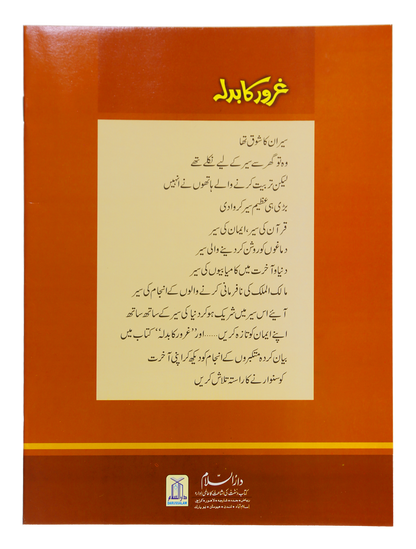 غرور کا بدلہ
سیر ان کا شوق تھا
وہ تو گھر سے سیر کے لیے نکلے تھے
لیکن تربیت کرنے والے ہاتھوں نے انہیں
بڑی ہی عظیم سیر کروا دی
قرآن کی سیر، ایمان کی سیر
دماغوں کو روشن کر دینے والی سیر
دنیا و آخرت میں کامیابیوں کی سیر
مالک الملک کی نافرمانی کرنے والوں کے انجام کی سیر
آئیے اس سیر میں شریک ہو کر دنیا کی سیر کے ساتھ ساتھ
اپنے ایمان کو تازہ کریں...... اور "غرور کا بدلہ" کتاب میں
بیان کردہ متکبروں کے انجام کو دیکھ کر اپنی آخرت
کو سنوارنے کا راستہ تلاش کریں
دارالسلام
کتاب و سنت کی اشاعت کا عالمی ادارہ